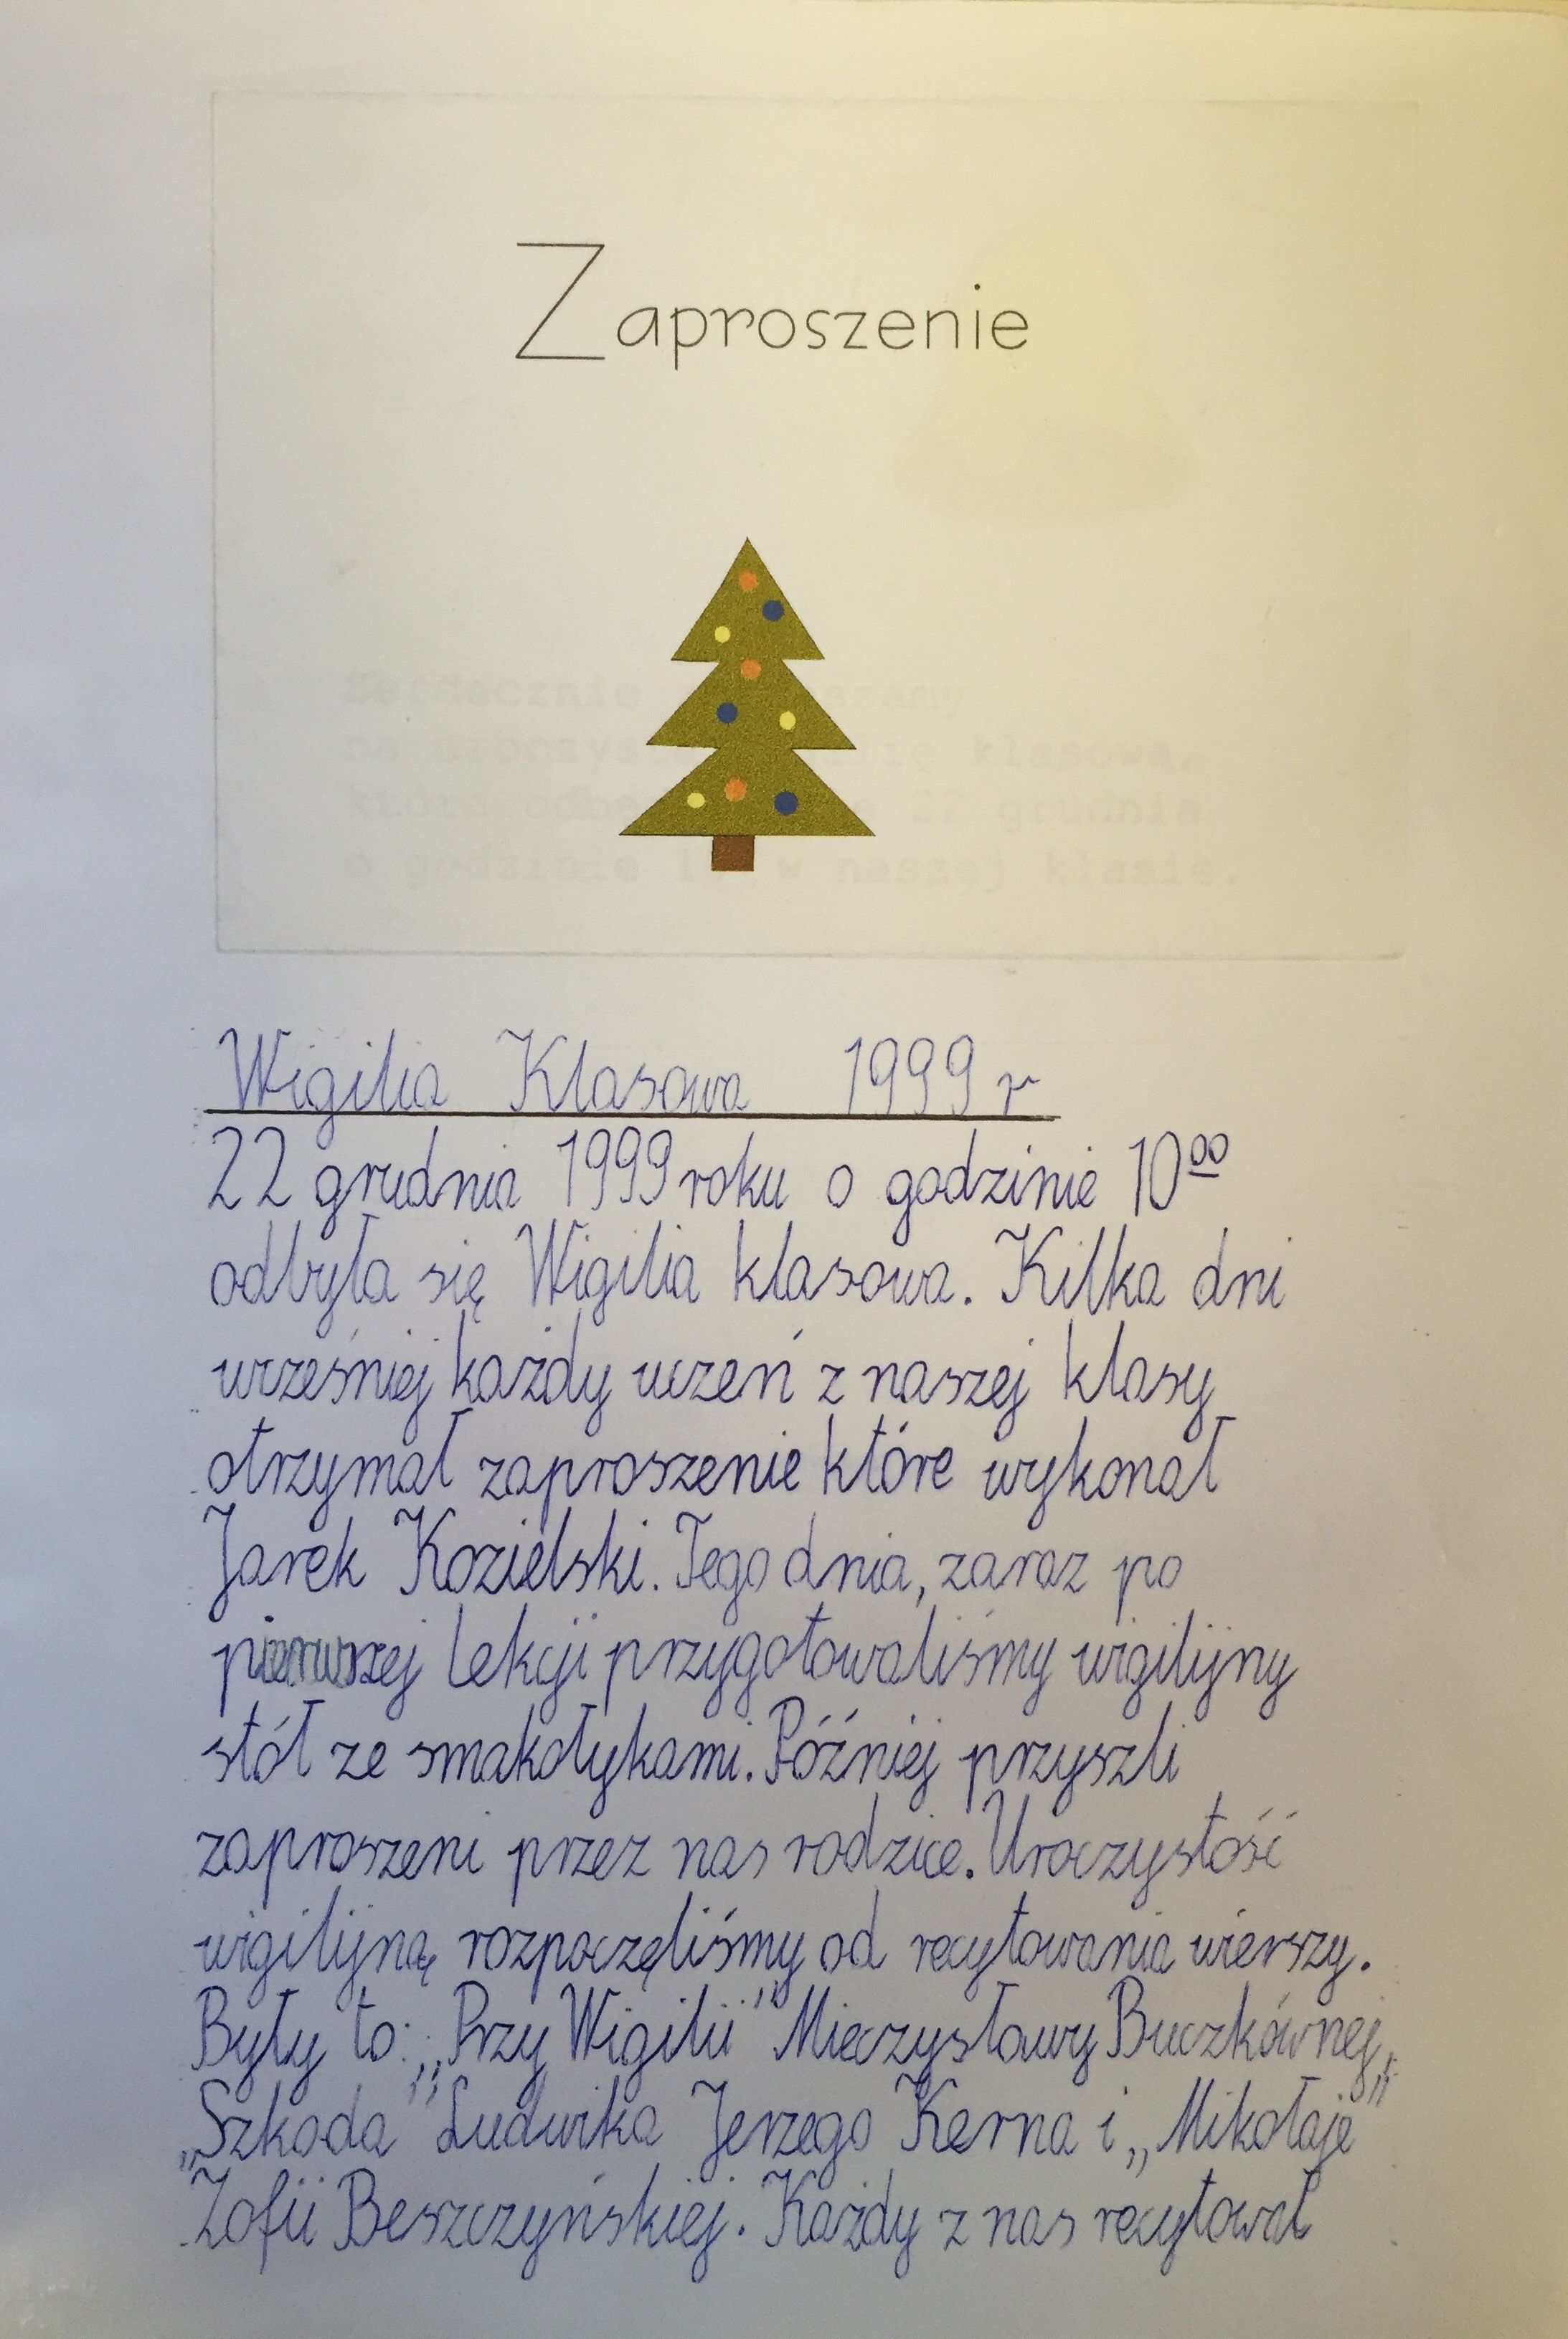 Zaproszenie
Serdecznie
klasową,
która 22 grudnia
o godzinie w naszej klasie.
Wigilia Klasowa 1999 r
22 grudnia 1999 roku o godzinie 10⁰⁰
odbyła się Wigilia klasowa. Kilka dni
wrześniej każdy uczeń z naszej klasy
otrzymał zaproszenie które wykonał
Jarek Kozielski. Tego dnia, zaraz po
pierwszej lekcji przygotowaliśmy wigilijny
stół ze smakołykami. Później przyszli
zaproszeni przez nas rodzice. Uroczystość
wigilijną rozpoczęliśmy od recytowania wierszy.
Były to: „Przy Wigilii" Mieczysławy Buczkównej,
„Szkoda" Ludwika Jerzego Kerna i „Mikołaje"
Zofii Beszczyńskiej. Każdy z nas recytował